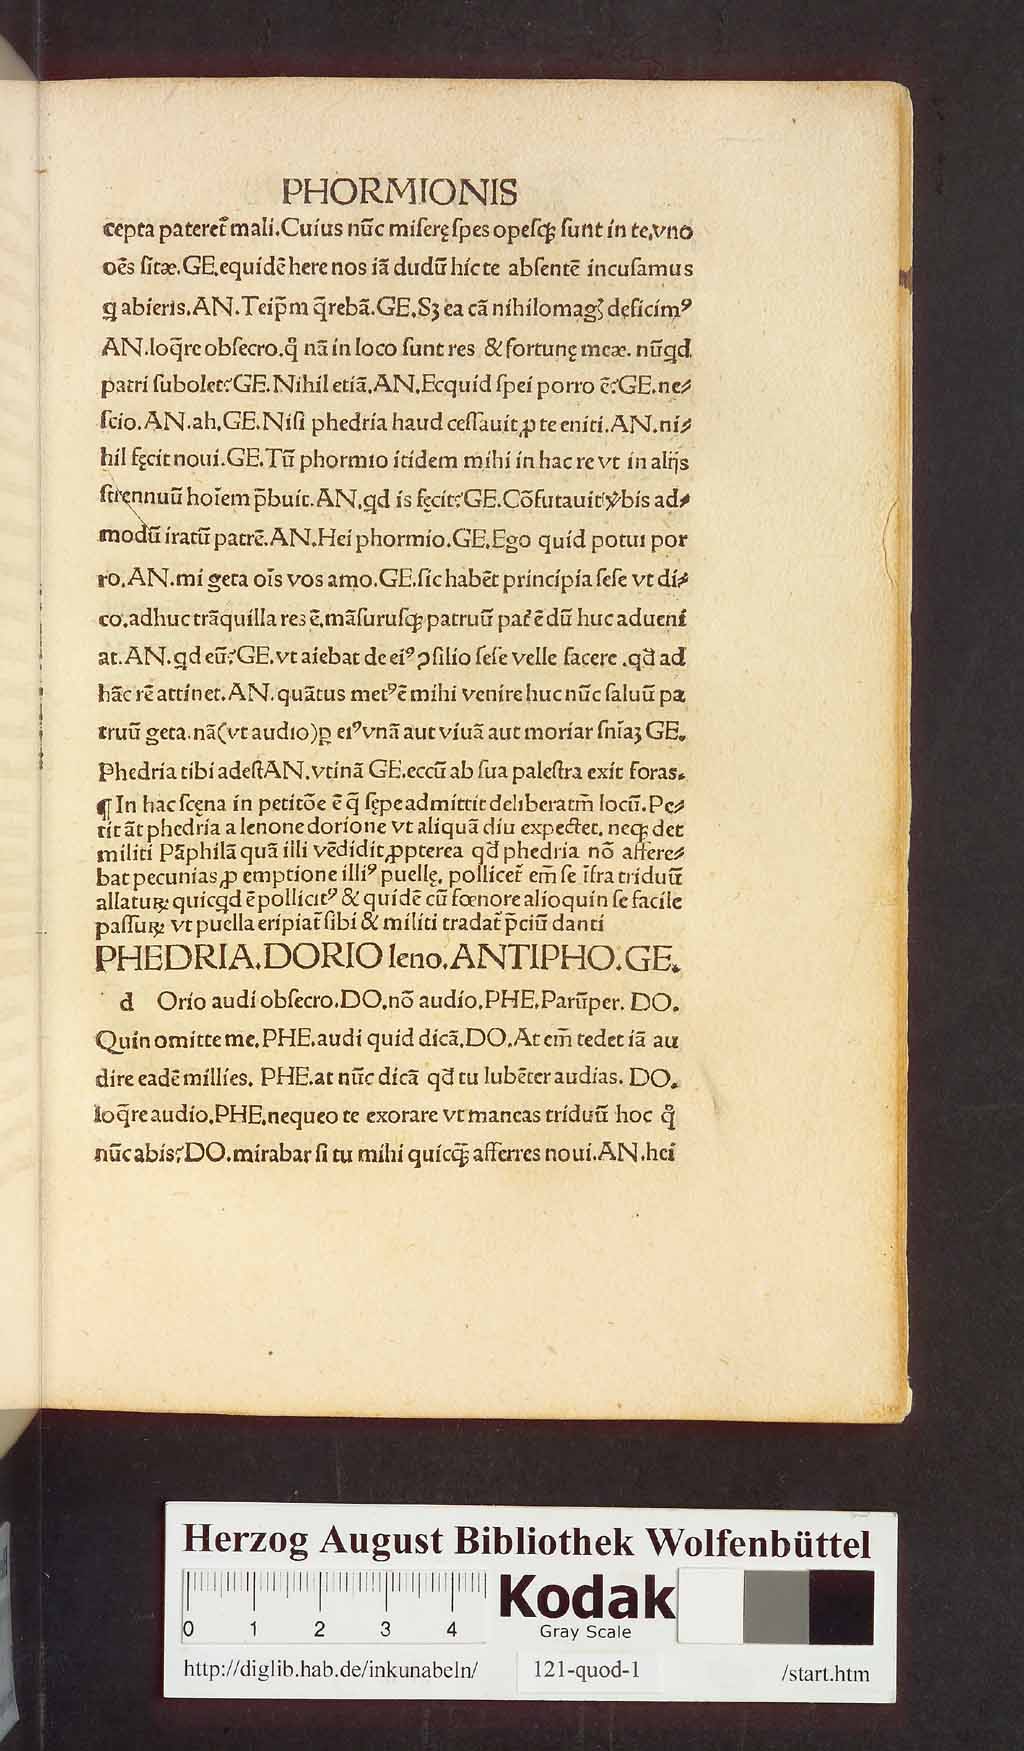 PHORMIONIS
cepta pateret᷑ mali.Cuius nūc miserę spes opesqꝫ sunt in te,vno
oēs sitæ.GE.equidē here nos iā dudū hic te absentē incusamus
q abieris.AN.Teip̄m q̄rebā.GE.Sꝫ ea cā nihilomagꝭ deficimꝰ
AN.loq̄re obsecro.q̊ nā in loco sunt res & fortunę meæ. nūqd
patri subolet?GE.Nihil etiā.AN.Ecquid spei porro ē?GE.ne⸗
scio.AN.ah.GE.Nisi phedria haud cessauit ꝓ te eniti.AN.ni⸗
hil fęcit noui.GE.Tū phormio itidem mihi in hac re vt in alijs
strennuū hoīem p̄buit.AN.qd is fęcit?GE.Cōfutauit v̓bis ad⸗
modū iratū patrē.AN.Hei phormio.GE.Ego quid potui por
ro.AN.mi geta oīs vos amo.GE.sic habēt principia sese vt di⸗
co.adhuc trāquilla res ē.māsurusqꝫ patruū pat̓ ē dū huc adueni
at.AN.qd eū?GE.vt aiebat de eiꝰ ꝯsilio sese velle facere .qd̄ ad
hāc rē attinet.AN.quātus metꝰ ē mihi venire huc nūc saluū pa
truū geta.nā(vt audio)ꝑ eiꝰ vnā aut viuā aut moriar sn̄iaꝫ GE.
Phedria tibi adestAN.vtinā GE.eccū ab sua palestra exit foras.
¶ In hac scęna in petitōe ē q̄ sępe admittit deliberatm̄ locū.Pe⸗
tit āt phedria a lenone dorione vt aliquā diu expectet. neqꝫ det
militi Pāphilā quā illi vēdidit ꝓpterea qd̄ phedria nō affere⸗
bat pecunias ꝓ emptione illiꝰ puellę. pollicet᷑ em̄ se īfra triduū
allaturꝫ quicqd ē pollicitꝰ & quidē cū fœnore alioquin se facile
passurꝫ vt puella eripiat᷑ sibi & militi tradat᷑ p̄ciū danti
PHEDRIA.DORIO leno.ANTIPHO.GE.
d Orio audi obsecro.DO.nō audio.PHE.Parūper. DO.
Quin omitte me.PHE.audi quid dicā.DO.At em̄ tedet iā au
dire eadē millies. PHE.at nūc dicā qd̄ tu lubēter audias. DO.
loq̄re audio.PHE.nequeo te exorare vt maneas triduū hoc q̊
nūc abis?DO.mirabar si tu mihi quicqꝫ̄ afferres noui.AN.hei
Herzog August Bibliothek Wolfenbüttel
0 1 2 3 4
Kodak
Gray Scale
http://diglib.hab.de/inkunabeln/ 121-quod-1 /start.htm